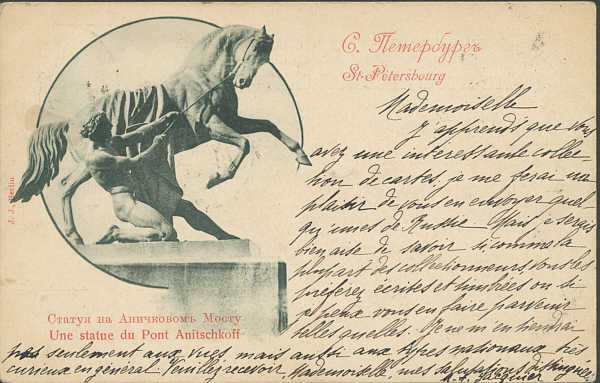 С. Петербургъ
St-Pétersbourg
Mademoiselle
J'apprends que vous
avez une interessante collec-
tion de cartes, je me ferai un
plaisir de vous en envoyer quel
qu'unes de Russie. Mais je serais
bien aise de savoir si comme la
plupart des collectionneurs vous les
préferez écrites et timbrées ou si
je peux vous en faire parvenir
telles quelles. Je ne m'en tiendrai
pas seulement aux vues, mais aussi aux types nationaux très
curieux en général. Veuillez recevoir Mademoiselle mes salutations distinguées
J. J. Berlin
Статуя на Аничковомъ Мосту
Une statue du Pont Anitschkoff